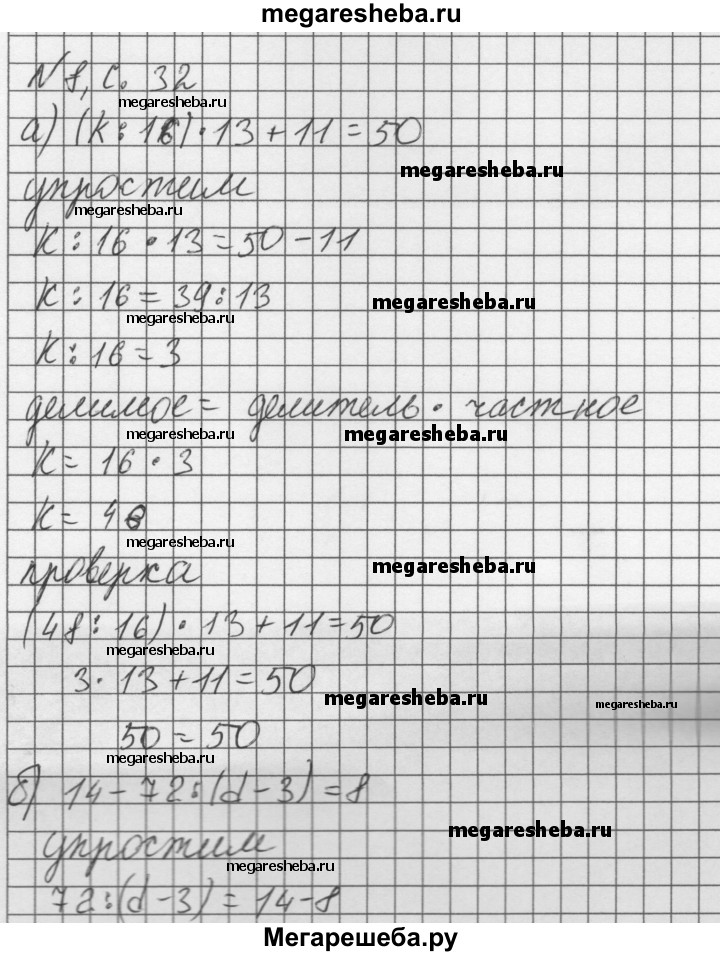 megaresheba.ru
№ 8, с. 32
megaresheba.ru
а) (k : 16) · 13 + 11 = 50
megaresheba.ru
упростим
megaresheba.ru
k : 16 · 13 = 50 - 11
k : 16 = 39 : 13
megaresheba.ru
megaresheba.ru
k : 16 = 3
megaresheba.ru
делимое = делитель · частное
megaresheba.ru
megaresheba.ru
k = 16 · 3
k = 48
megaresheba.ru
проверка
megaresheba.ru
(48 : 16) · 13 + 11 = 50
megaresheba.ru
3 · 13 + 11 = 50
megaresheba.ru
megaresheba.ru
50 = 50
megaresheba.ru
б) 14 - 72 : (d - 3) = 8
упростим
megaresheba.ru
megaresheba.ru
72 : (d - 3) = 14 - 8
Мегарешеба.ру